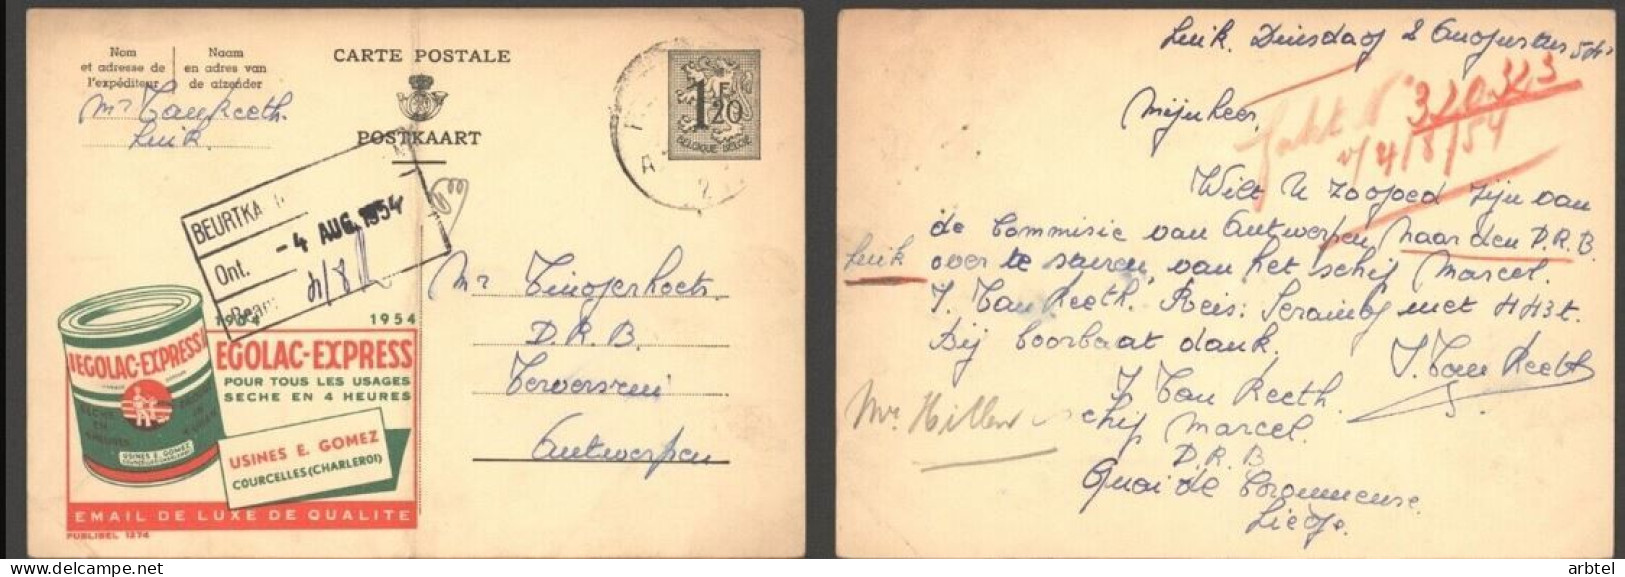 Nom
et adresse de
l'expéditeur
Naam
en adres van
de afzender
CARTE POSTALE
POSTKAART
1F20
BELGIQUE BELGIË
Mr Van Reeth.
Luik.
BEURTKA
Ont. - 4 AUG. 1954
4/8
1904 1954
EGOLAC-EXPRESS
EGOLAC-EXPRESS
POUR TOUS LES USAGES
SECHE EN 4 HEURES
USINES E. GOMEZ
USINES E. GOMEZ
COURCELLES (CHARLEROI)
EMAIL DE LUXE DE QUALITE
PUBLIBEL 1274
Mr
D.R.B.
Antwerpen
Luik. Dinsdag 2 Augustus 54.
Mijnheer,
N° 320.323
4/8/54
Wilt U zoogoed zijn van
de Commisie van Antwerpen naar den D.R.B.
Luik over te sturen, van het schip Marcel.
J. Van Reeth. Reis: Seraing met HH3t.
Bij voorbaat dank,
J. Van Reeth
J. Van Reeth.
schip Marcel.
D.R.B.
Mr Hillen
Quai de Coronmeuse.
Liège.
arbtel